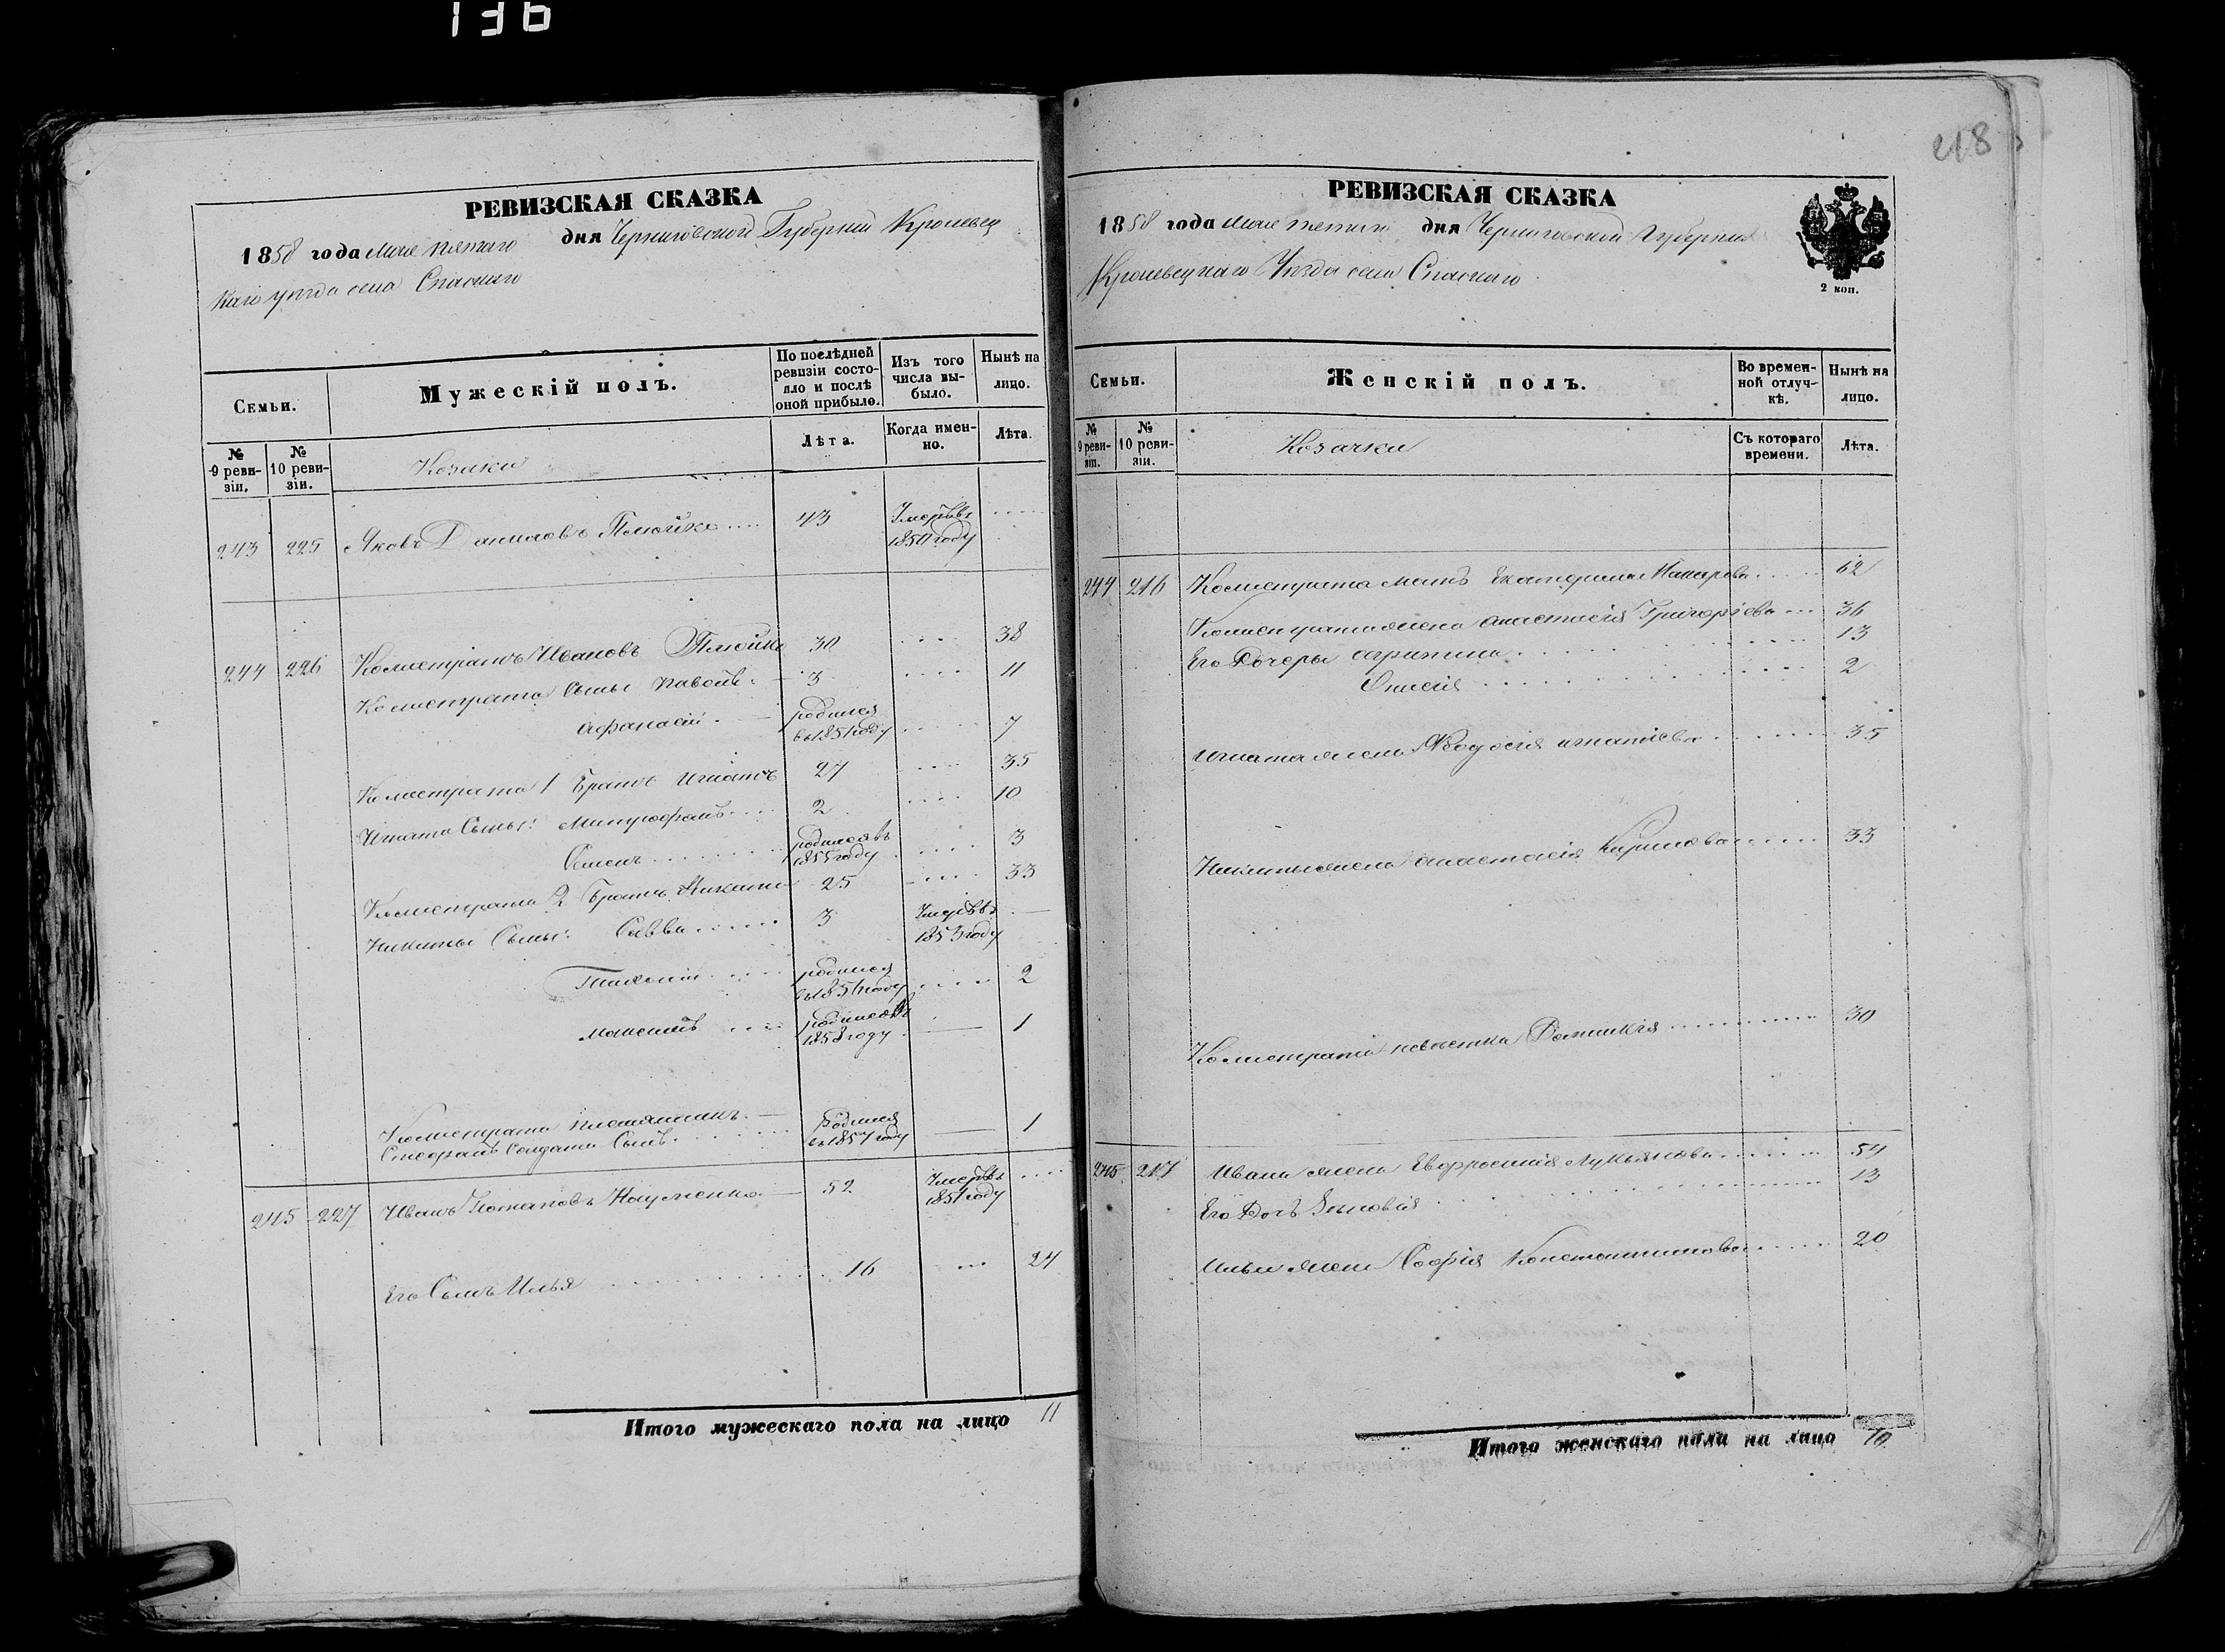 136
218
РЕВИЗСКАЯ СКАЗКА
1858 года мая пятаго дня Черниговской Губерніи Кролевец
каго уезда села Спаскаго
Семьи.
Мужескій полъ.
По послѣдней ревизіи состояло и послѣ оной прибыло.
Изъ того числа выбыло.
Нынѣ на лицо.
№ 9 ревизіи.
№ 10 ревизіи.
Козаки
Лѣта.
Когда именно.
Лѣта.
243 225 Яковъ Даниловъ 43 Умеръ въ
1850 году
244 226 Калистратъ Ивановъ 30 38
Калистрата Сыны 3 11
Афанасій родился
въ 1851 году 7
Калистрата 1 Братъ Игнатъ 27 35
Игната Сыны: Митрофанъ 2 10
Семенъ родился въ
1855 году 3
Калистрата 2 Братъ Никита 25 33
Никиты Сыны: Савва 3 Умеръ въ
1853 году
родился
въ 1856 году 2
Максимъ родился въ
1858 году 1
Калистрата племянникъ
Стефанъ Солдата Сынъ Родился
въ 1857 году 1
245 227 Иванъ Потаповъ Науменко 52 Умеръ въ
1851 году
Его Сынъ Илья 16 24
Итого мужескаго пола на лицо 11
РЕВИЗСКАЯ СКАЗКА
1858 года мая пятаго дня Черниговской Губерніи
Кролевецкаго Уезда села Спаскаго
2 коп.
Семьи.
Женскій полъ.
Во временной отлучкѣ.
Нынѣ на лицо.
№ 9 ревизіи.
№ 10 ревизіи.
Козачки
Съ котораго времени.
Лѣта.
244 216 Калистрата мать Екатерина Макарова 62
Калистрата жена Анастасія Григоріева 36
Его Дочери Агрипина 13
2
Игната жена Феодосія Игнатіева 35
Никиты жена Анастасія Кирилова 33
Калистрата невестка 30
245 217 Ивана жена Евфросинія Лукьянова 54
Его Дочь Зиновія 13
Ильи жена Софія Константинова 20
Итого женскаго пола на лицо 10